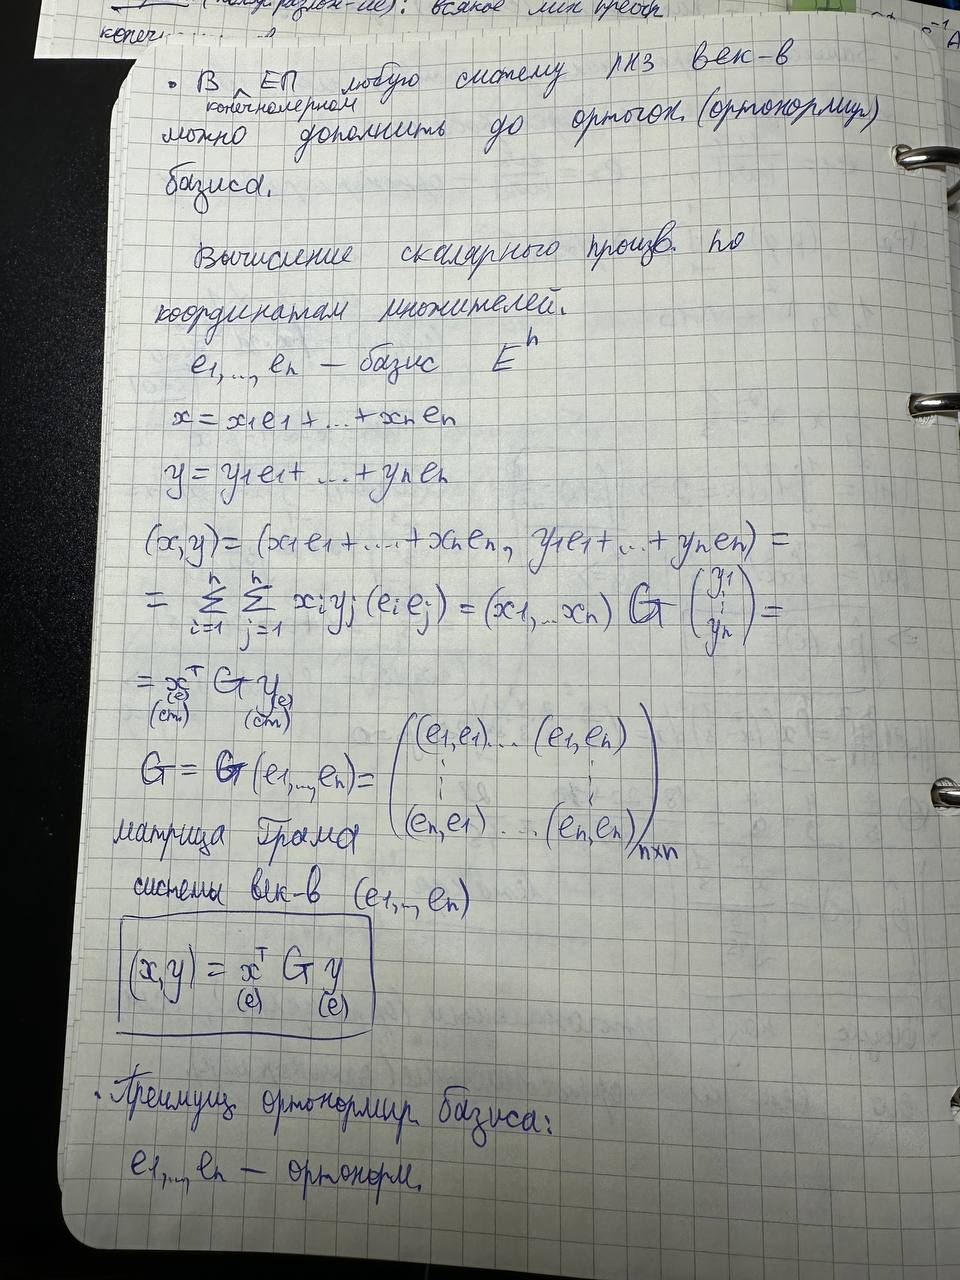 (полуразлож-ие): всякое лин преобр
конеч
-1
A
• В ЕП любую систему ЛНЗ век-в
конечномерном
можно дополнить до ортогон. (ортонормир)
базиса.
Вычисление скалярного произв. по
координатам множителей.
e1,..., en — базис E^n
x = x1e1 + ... + xnen
y = y1e1 + ... + ynen
(x,y) = (x1e1 + .... + xnen, y1e1 + ... + ynen) =
= n∑i=1 n∑j=1 xiyj (ei ej) = (x1,...xn) G (y1 ⋮ yn) =
= x^T(e) G y(e)
(ст.) (ст)
G = G (e1,..,en) = ((e1,e1)... (e1,en) ⋮ ⋮ (en,e1) .... (en,en))n×n
матрица Грама
системы век-в (e1,.., en)
(x,y) = x^T G y
(e) (e)
• Преимущ. ортонормир. базиса:
e1,..., en — ортонорм.